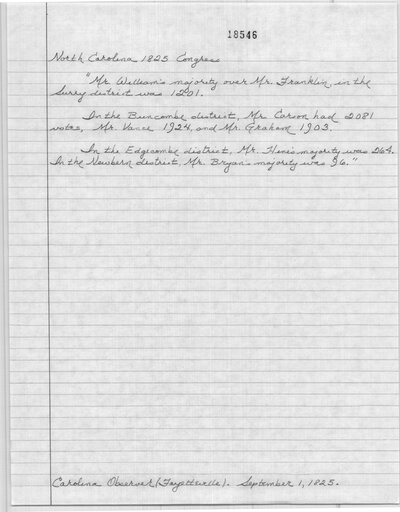 18546
North Carolina 1825 Congress
"Mr. Williams majority over Mr. Franklin, in the
Surry district was 1201.
In the Buncombe district, Mr. Carson had 2081
votes, Mr. Vance 1924, and Mr. Graham 1903.
In the Edgecombe district, Mr. Hines majority was 264.
In the Newbern district, Mr. Bryan's majority was 96."
Carolina Observer (Fayetteville). September 1, 1825.